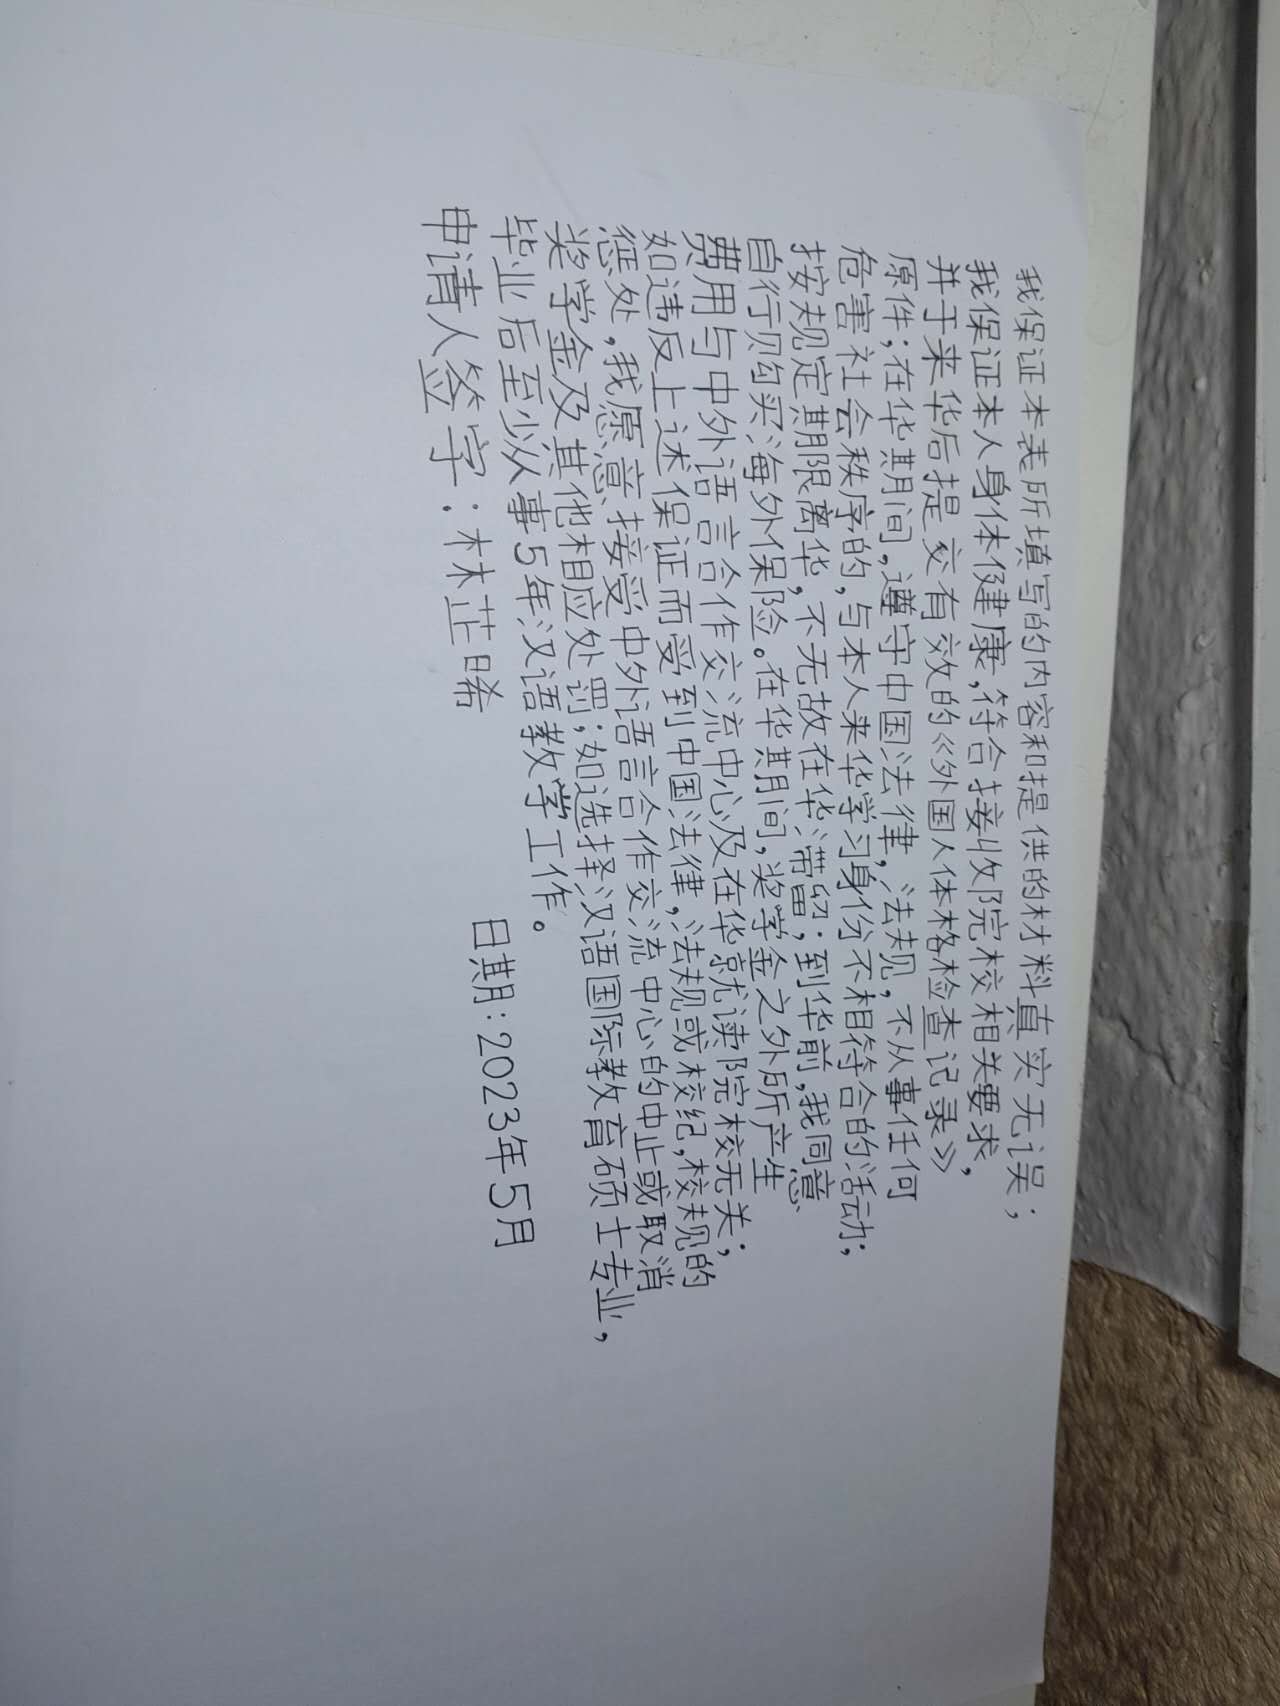 我保证本表所填写的内容和提供的材料真实无误；
我保证本人身体健康,符合接收院校相关要求,
并于来华后提交有效的《外国人体格检查记录》
原件；在华期间。遵守中国法律,法规,不从事任何
危害社会秩序的,与本人来华学习身份不相符合的活动；
按规定期限离华,不无故在华滞留；到华前,我同意
自行购买海外保险。在华期间,奖学金之外所产生
费用与中外语言合作交流中心及在华就读院校无关；
如违反上述保证而受到中国法律,法规或校纪,校规的
惩处,我愿意接受中外语言合作交流中心的中止或取消
奖学金及其他相应处罚；如选择汉语国际教育硕士专业,
毕业后至少从事5年汉语教学工作。
申请人签字：林芷晞 日期：2023年5月